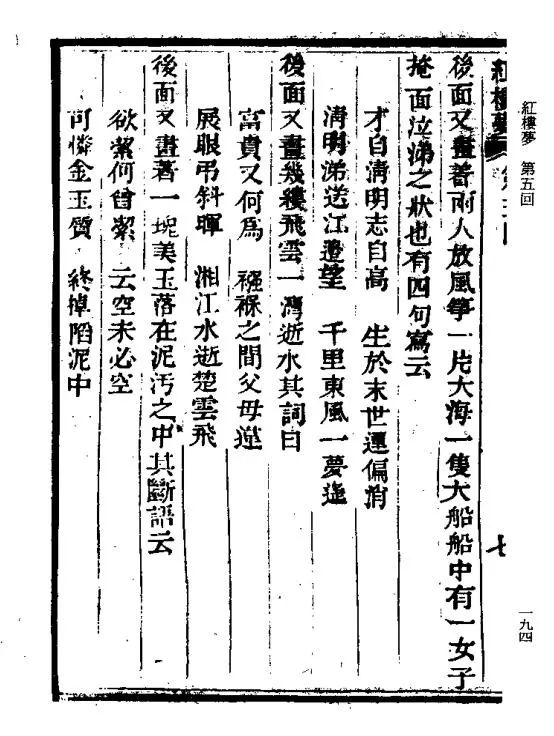 紅樓夢　第五回
一九四
紅樓夢
七
後面又畫着兩人放風箏一片大海一隻大船船中有一女子
掩面泣涕之狀也有四句寫云
才自清明志自高　生於末世運偏消
清明涕送江邊望　千里東風一夢遙
後面又畫幾縷飛雲一灣逝水其詞曰
富貴又何爲　襁褓之間父母違
展眼弔斜暉　湘江水逝楚雲飛
後面又畫著一塊美玉落在泥汚之中其斷語云
欲潔何曾潔　云空未必空
可憐金玉質　終掉陷泥中